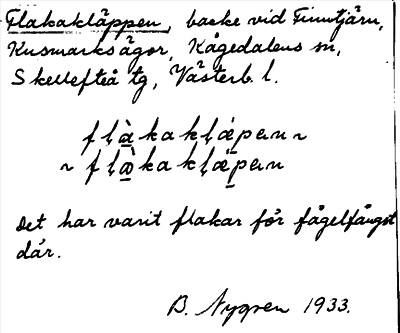 Flakakläppen, backe vid Finntjärn,
Kusmarksågor, Kågedalens sn,
Skellefteå tg, Västerb. l.
fḷàkakḷǽpen ~
~ fḷàkakḷǽpen
Det har varit flakar för fågelfångst
där.
B. Nygren 1933.